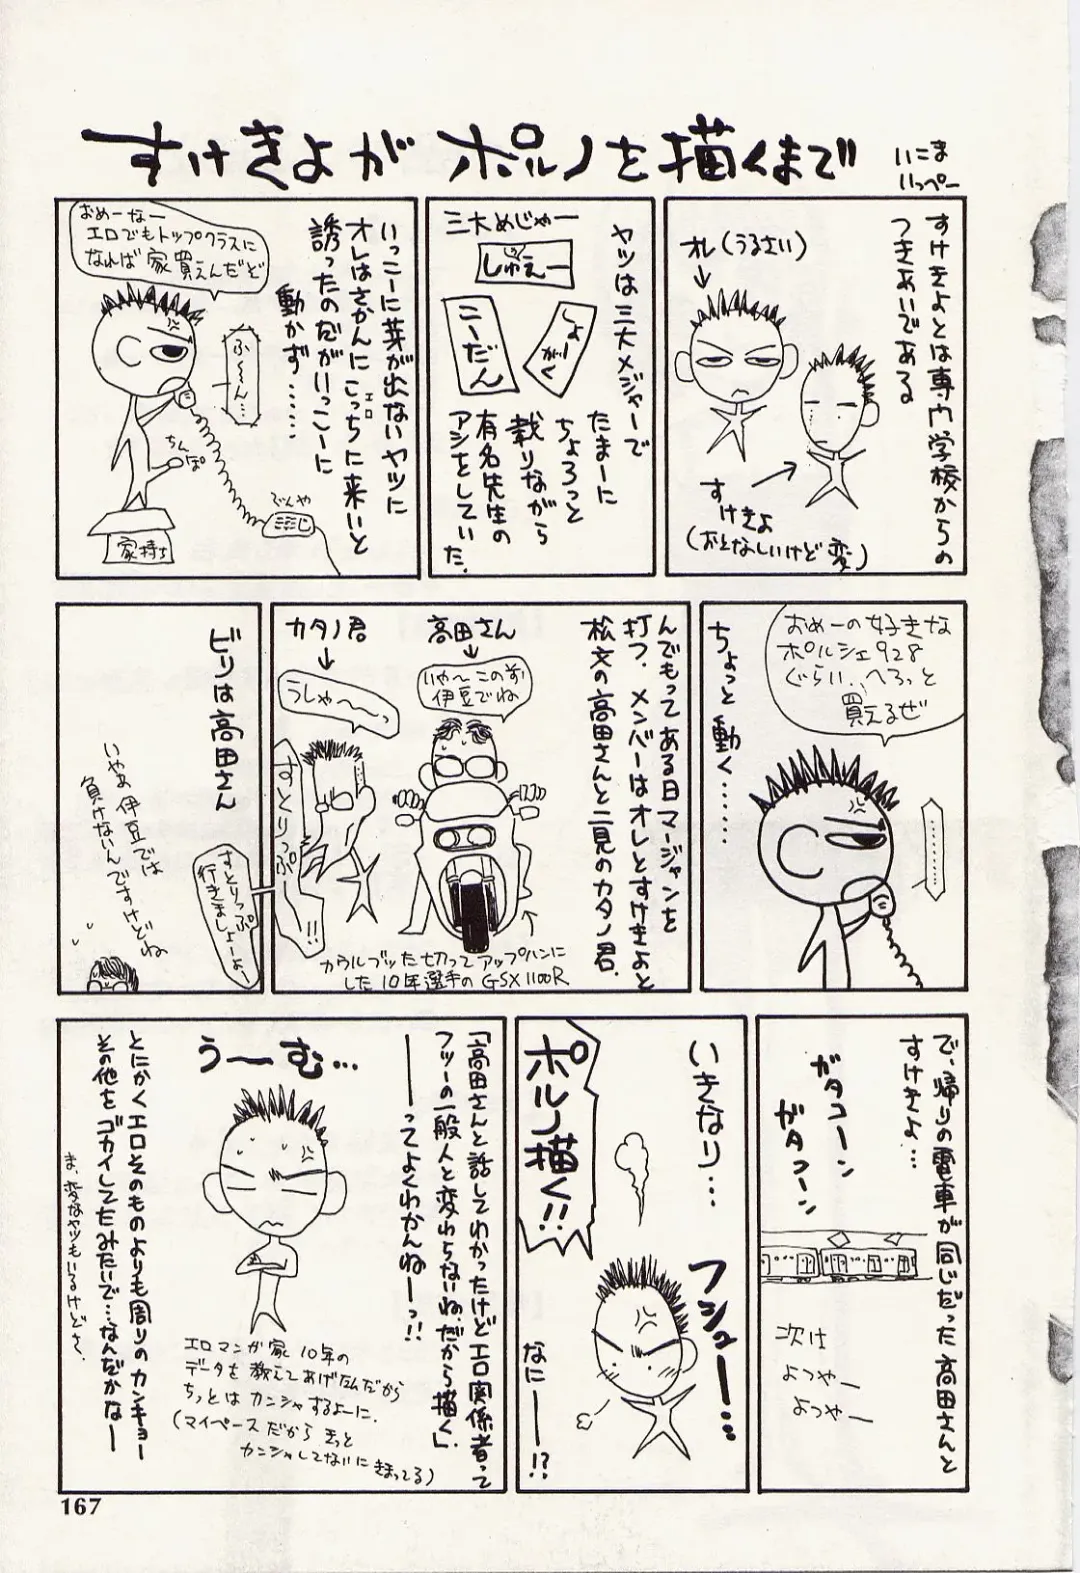 すけきよが ポルノを描くまで
いこま
いっぺー
すけきよとは専門学校からの
つきあいである
オレ(うるさい)
すけきよ
(おとなしいけど変)
ヤツは三大メジャーで
たまーに
ちょろっと
載りながら
有名先生の
アシをしていた.
三大めじゃー
しゅえー
しょーがく
こーだん
いっこーに芽が出ないヤツに
オレはさかんにこっちに来いと
エロ
誘ったのだがいっこーに
動かず……
おめーなー
エロでもトップクラスに
なれば家買えんだど
ふーん…
ちんぽ
でんや
家持ち
おめーの好きな
ポルシェ928
ぐらい..へろっと
買えるぜ
ちょっと動く……
………
んでもってある日マージャンを
打つ.メンバーはオレとすけきよと
松文の高田さんと二見のカタノ君.
高田さん
いや〜このまえ
伊豆でね
カタノ君
うしゃ〜〜っ
すとりっぷー!!
カウルブッた切ってアップハンに
した10年選手のGSX1100R
ビリは高田さん
すとりっぷ
行きましょーよ.
いやぁ伊豆では
負けないんですけどね
で、帰りの電車が同じだった高田さんと
すけきよ…
ガタコーン
ガタコーン
次は
よつやー
よつやー
いきなり…
ポルノ描く!!
フシューー…
なにーー!?
「高田さんと話してわかったけどエロ関係者って
フツーの一般人と変わらないね.だから描く」.
ーーってよくわかんねーーっ!!
うーむ…
エロマンガ家10年の
データを教えてあげたんだから
ちっとはカンシャするよーに.
(マイペースだからきっと
カンシャしてないにきまってる)
とにかくエロそのものよりも周りのカンキョー
その他をゴカイしてたみたいで…なんだかなー
ま、変なヤツもいるけどさ.
167